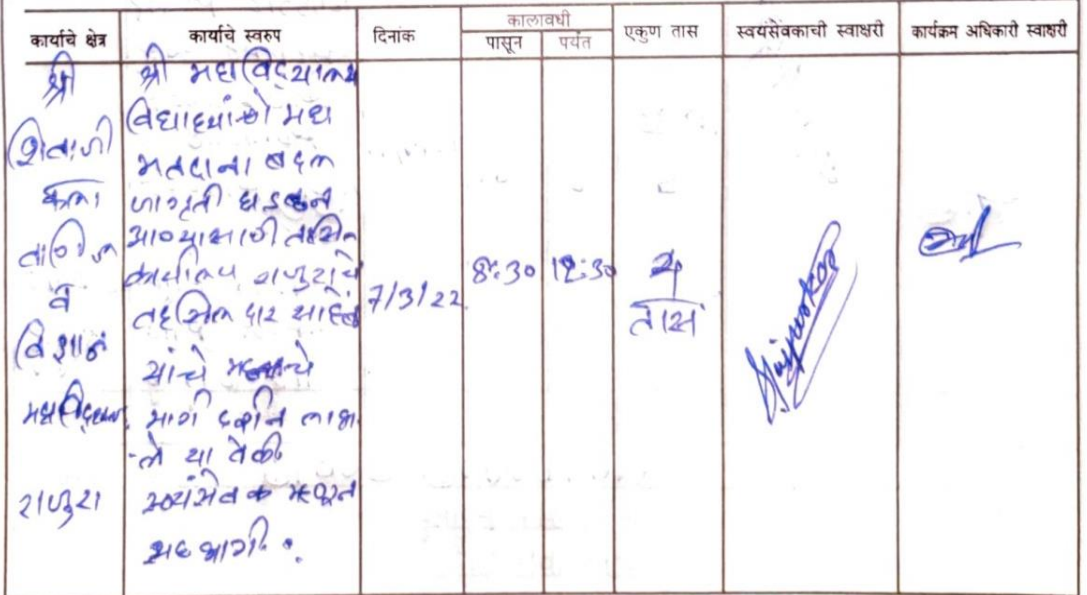 कार्याचे क्षेत्र कार्याचे स्वरुप दिनांक कालावधी एकुण तास स्वयंसेवकाची स्वाक्षरी कार्यक्रम अधिकारी स्वाक्षरी
पासून पर्यंत
श्री
शिवाजी
कला
वाणिज्य
व
विज्ञान
महाविद्यालय
राजुरा
श्री महाविद्यालय
विद्यार्थ्यांचे मध
मतदाना बद्दल
जागृती घडवून
आण्यासाठी तासिल
कार्यालय राजुराचे
तहसिल दार साहेब
यांचे महत्वाचे
मार्ग दर्शन लाभ
-ले या वेळी
स्वयंसेवक म्हणून
सहभागी.
7/3/22
8:30
12:30
4
तास